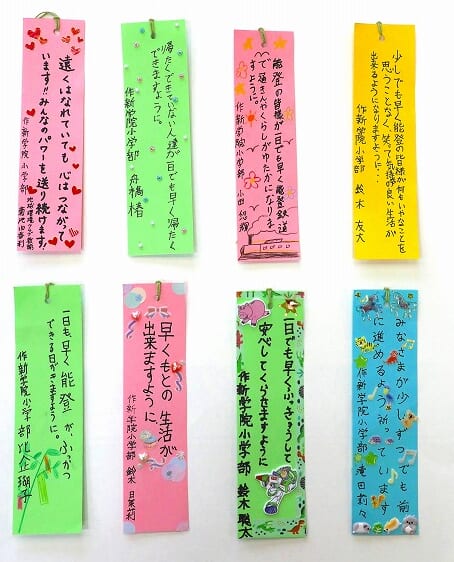 遠くはなれていても心はつながって
います!!みんなのパワーを送り続けます!
作新学院小学部
帰たくできていない人達が一日でも早く帰たく
できますように。
作新学院小学部 舟橋 椿
能登の皆様が一日でも早く能登鉄道
で通きんやくらしがゆたかになりま
すように。
作新学院小学部 小田
少しでも早く能登の皆様が何もいやなことを
思うことなく、笑って気持の良い生活が
出来るようになりますように…
作新学院小学部 鈴木 友大
一日も早く能登が、ふっかつ
できる日がきますように。
作新学院小学部 比企瑚子
早くもとの生活が
出来ますように
作新学院小学部 鈴木 日茉莉
一日でも早くふっきゅうして
安心してくらせますように
作新学院小学部 鈴木聡太
みなさまが少しずつでも前
に進めるよう祈っています
作新学院小学部 滝田莉々